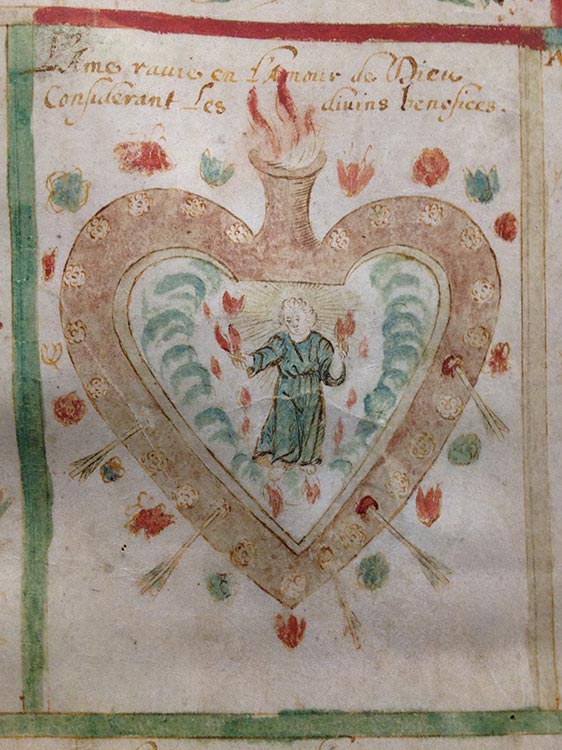 L'Ame ravie en L'Amour de Dieu
Considerant Les divins benefices.